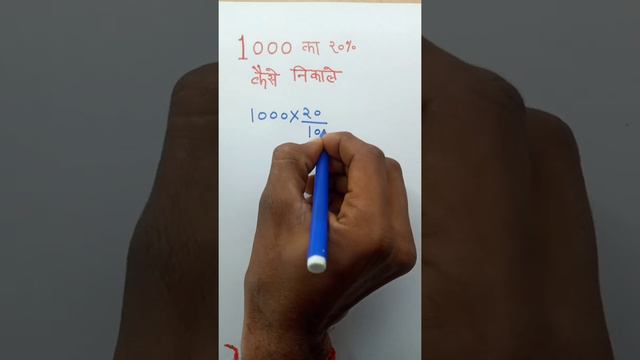 1000 का २०%
कैसे निकाले
1000×20
10